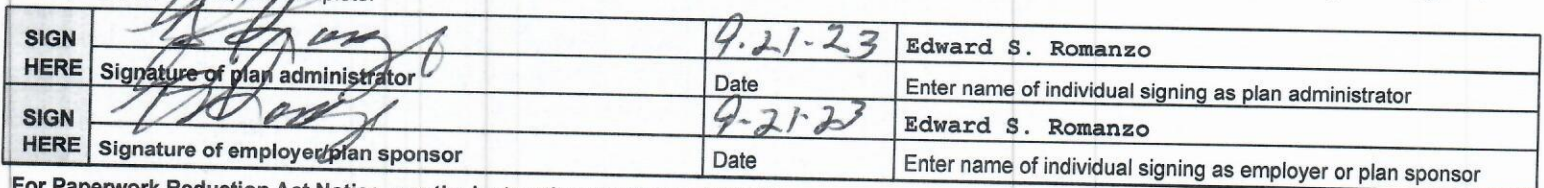 SIGN HERE
9.21-23
Edward S. Romanzo
Signature of plan administrator
Date
Enter name of individual signing as plan administrator
SIGN HERE
9-21-23
Edward S. Romanzo
Signature of employer/plan sponsor
Date
Enter name of individual signing as employer or plan sponsor
For Paperwork Reduction Act Notice